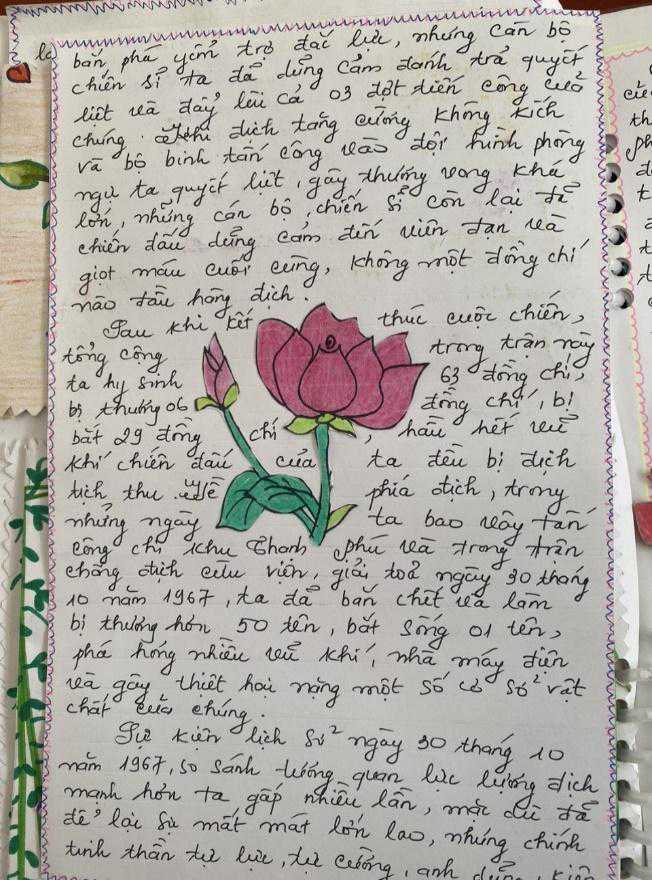 bắn phá yểm trợ đắc lực, nhưng cán bộ
chiến sĩ ta đã dũng cảm đánh trả quyết
liệt và đẩy lùi cả 03 đợt tiến công của
chúng. Khi địch tăng cường không kích
và bộ binh tấn công vào đội hình phòng
ngự ta quyết liệt, gây thương vong khá
lớn, những cán bộ, chiến sĩ còn lại đã
chiến đấu dũng cảm đến viên đạn và
giọt máu cuối cùng, không một đồng chí
nào đầu hàng địch.
Sau khi kết thúc cuộc chiến,
tổng cộng trong trận này
ta hy sinh 63 đồng chí,
bị thương 06 đồng chí, bị
bắt 29 đồng chí, hầu hết vũ
khí chiến đấu của ta đều bị địch
tịch thu. Về phía địch, trong
những ngày ta bao vây tấn
công chi khu Thanh Phú và trong trận
chống địch cứu viện, giải toả ngày 30 tháng
10 năm 1967, ta đã bắn chết và làm
bị thương hơn 50 tên, bắt sống 01 tên,
phá hỏng nhiều vũ khí, nhà máy điện
và gây thiệt hại nặng một số cơ sở vật
chất của chúng.
Sự kiện lịch sử ngày 30 tháng 10
năm 1967, so sánh tương quan lực lượng địch
mạnh hơn ta gấp nhiều lần, mặc dù đã
để lại sự mất mát lớn lao, nhưng chính
tinh thần tự lực, tự cường, anh dũng, kiên